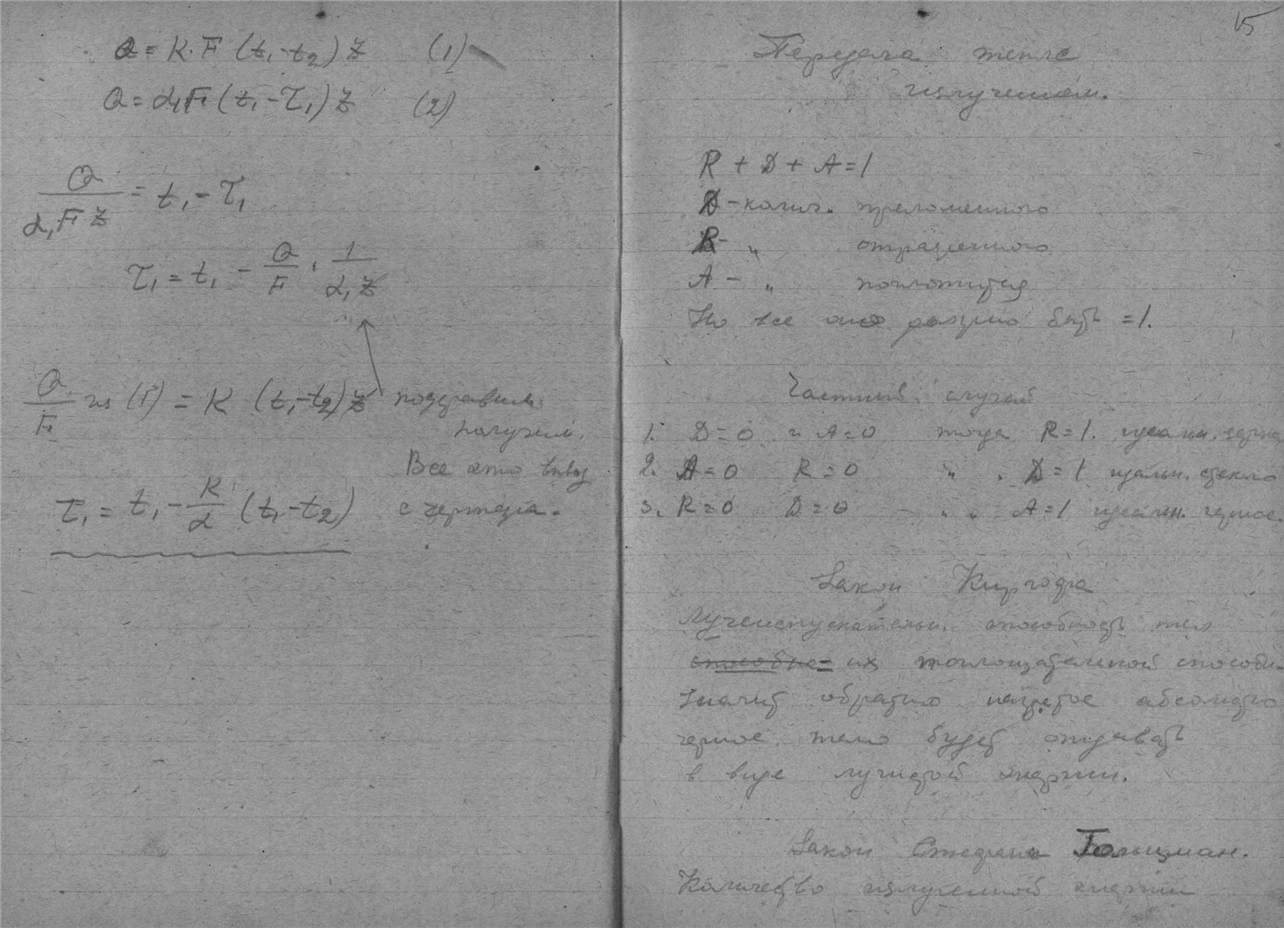 Q = K·F (t₁-t₂) Z (1)
Q = α₁F(t₁-τ₁) Z (2)
Q/(α₁FZ) = t₁ - τ₁
τ₁ = t₁ - Q/F · 1/(α₁Z)
Q/F из (1) = K (t₁-t₂) Z подставим
получим.
Все это вывод
τ₁ = t₁ - K/α (t₁-t₂) с чертежа.
15
Передача тепла
излучением.
R + D + A = 1
D - колич. преломленного
R - " отраженного
A - " поглотится
Но все оно должно быть = 1.
Частный случай
1. D = 0 и A = 0 тогда R = 1. идеальн. зерка
2. A = 0 R = 0 " . D = 1 идеальн. стекло
3. R = 0 D = 0 " " A = 1 идеальн. черное
Закон Киргофа
Лучеиспускательн. способность тел
способно = их поглощательной способн.
Значит обратно нагретое абсолютно
черное тело будет отдавать
в виде лучистой энергии.
Закон Стефана Больцман.
Количество излученной энергии